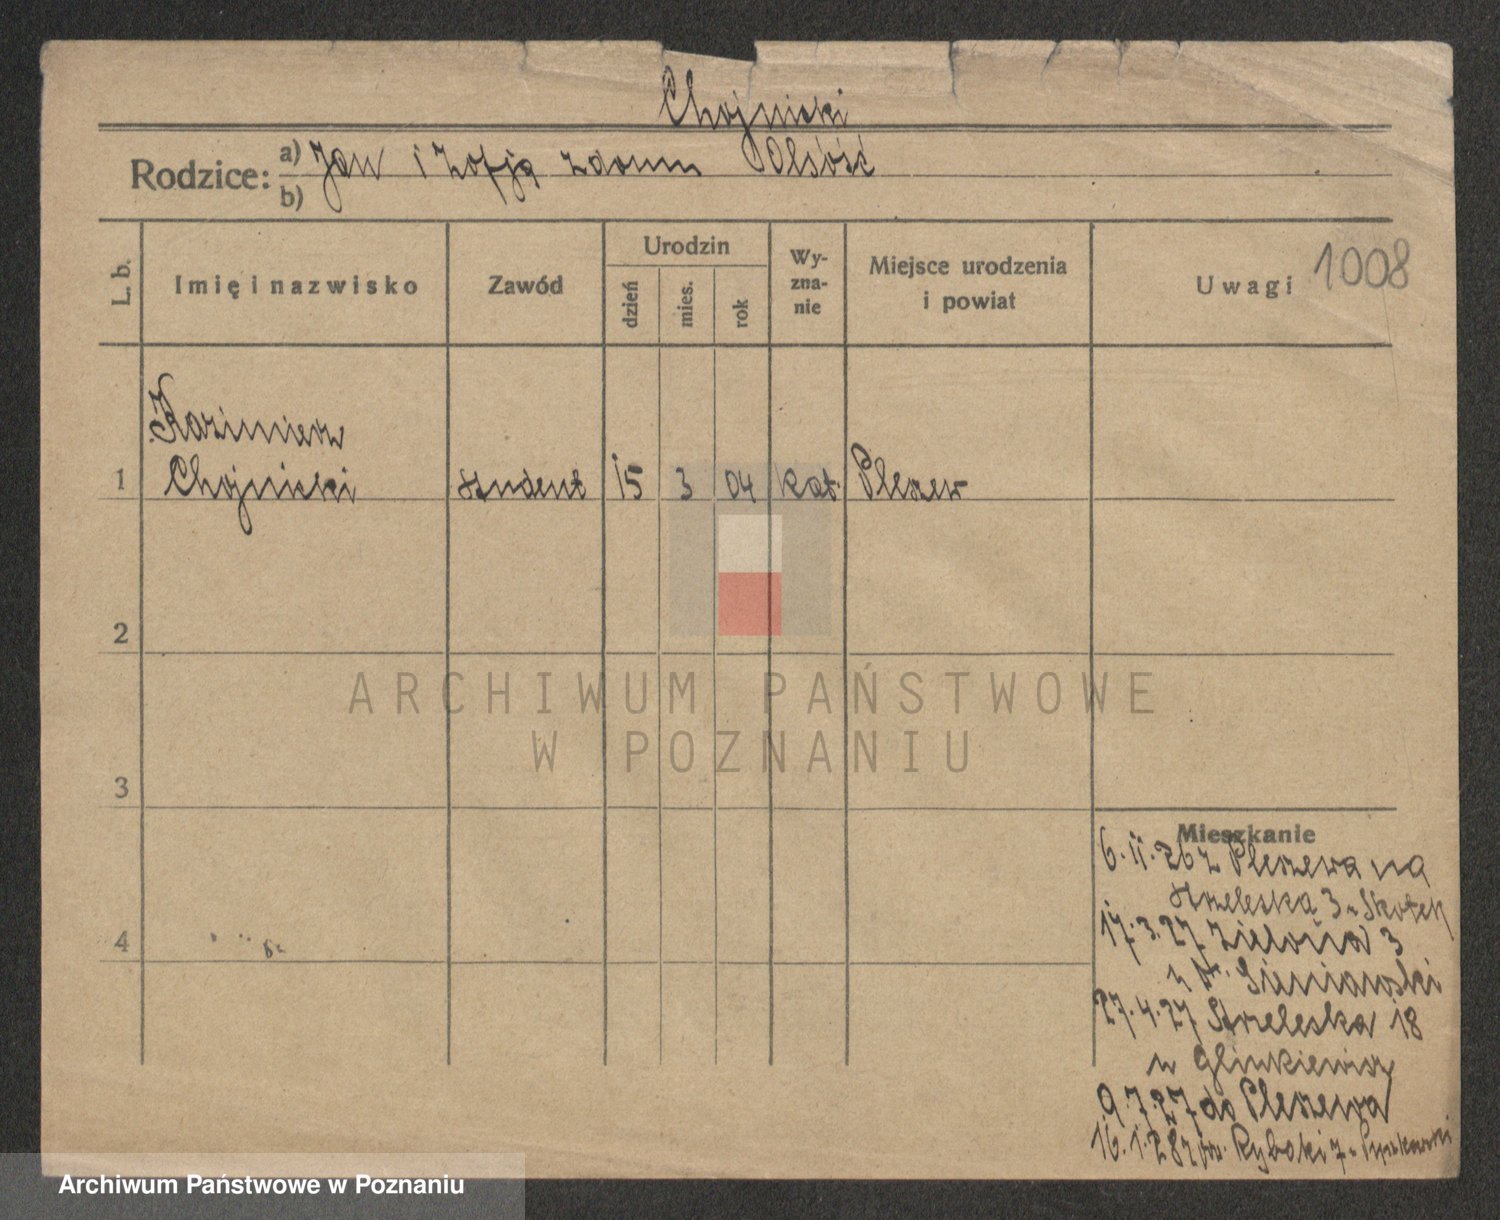 Chojnicki
Rodzice: a) Jan i Zofja z domu
b)
L. b.
Imię i nazwisko
Zawód
Urodzin
dzień
mies.
rok
Wy-
zna-
nie
Miejsce urodzenia
i powiat
Uwagi
1008
Kazimierz
1 Chojnicki student 15 3 04 kat. Pleszew
2
3
4
ARCHIWUM PAŃSTWOWE
W POZNANIU
Mieszkanie
6.11.26 z Pleszewa na
Strzelecka 3 u
17.3.27 Zielona 3
u Sieniawski
27.4.27 Strzelecka 18
u Glinkiewicz
9.7.27 do Pleszewa
16.1.28 Rybaki 7 u
Archiwum Państwowe w Poznaniu